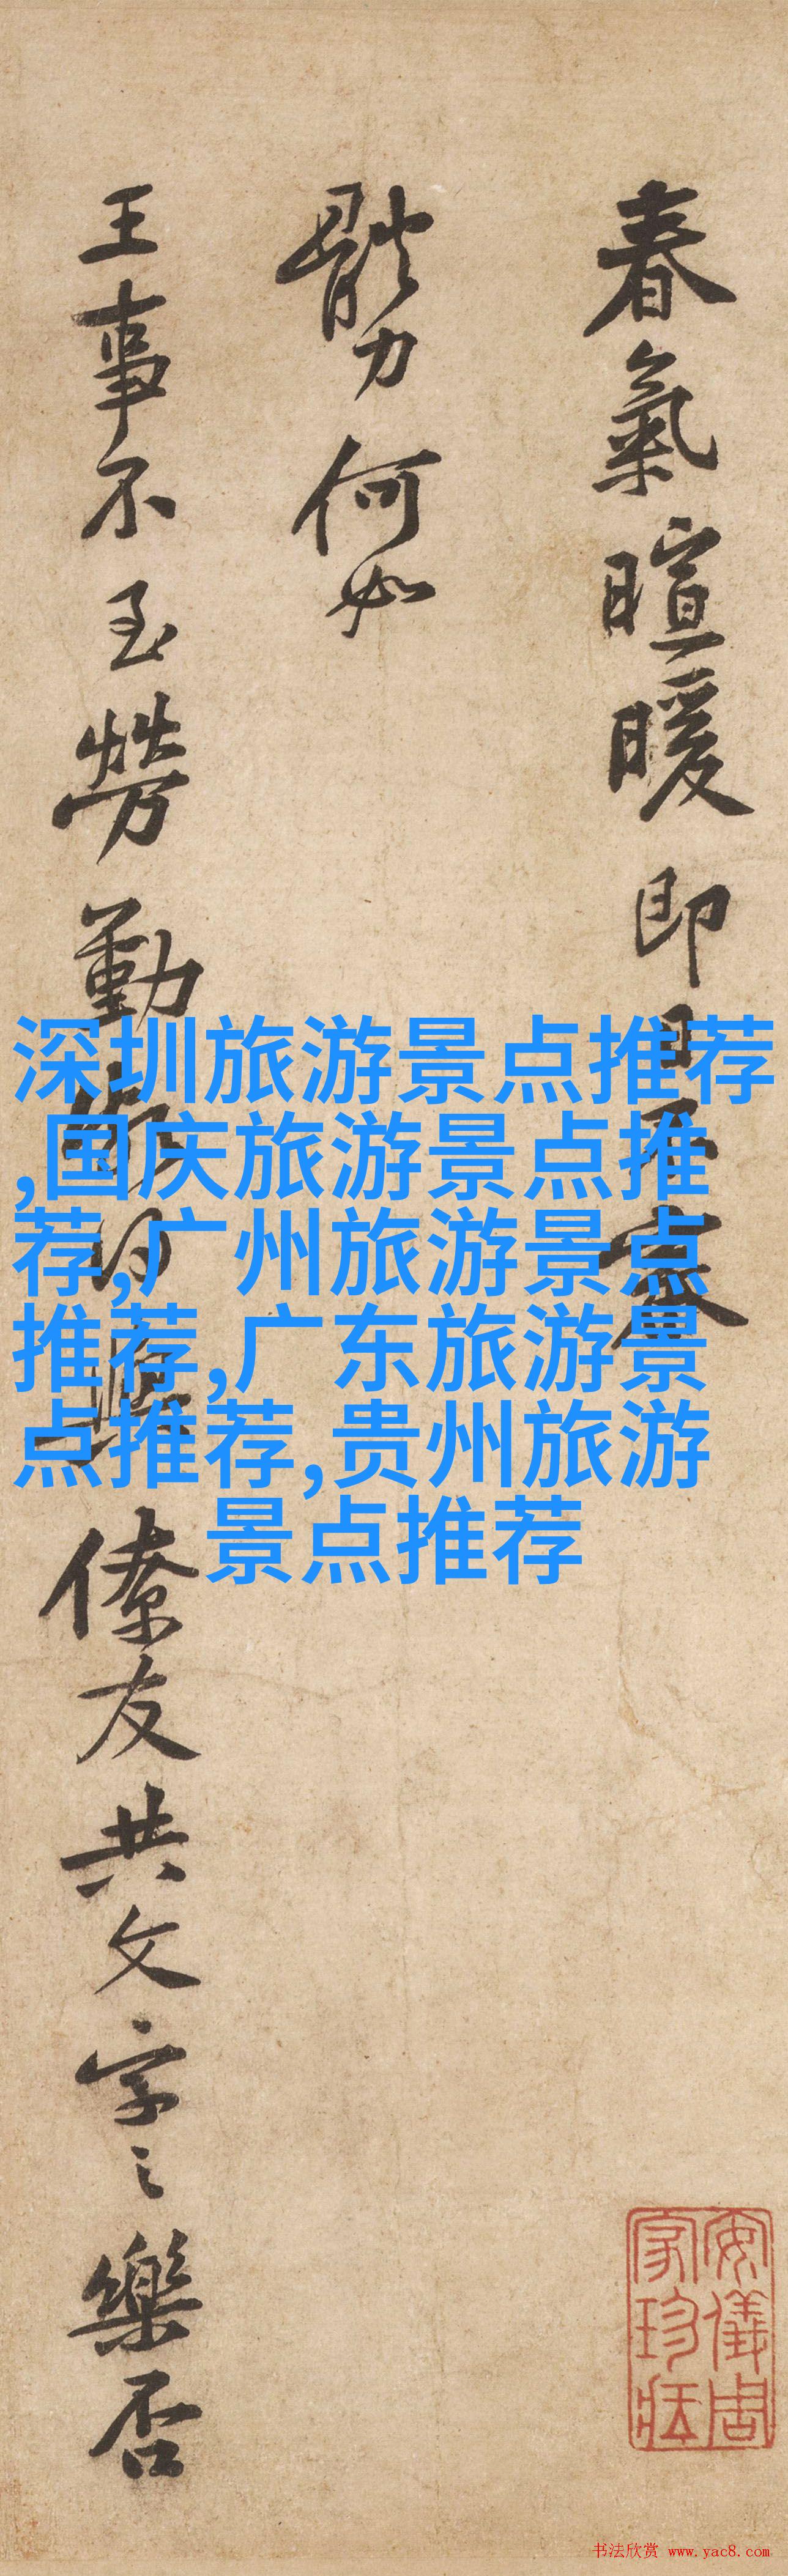 春氣暄暖即日不審
體力何如
王事不至勞勤
僚友共文字之樂否
深圳旅游景点推荐
,国庆旅游景点推
荐,广州旅游景点
推荐,广东旅游景
点推荐,贵州旅游
景点推荐
安儀周
家珍藏
书法欣赏 www.yac8.com